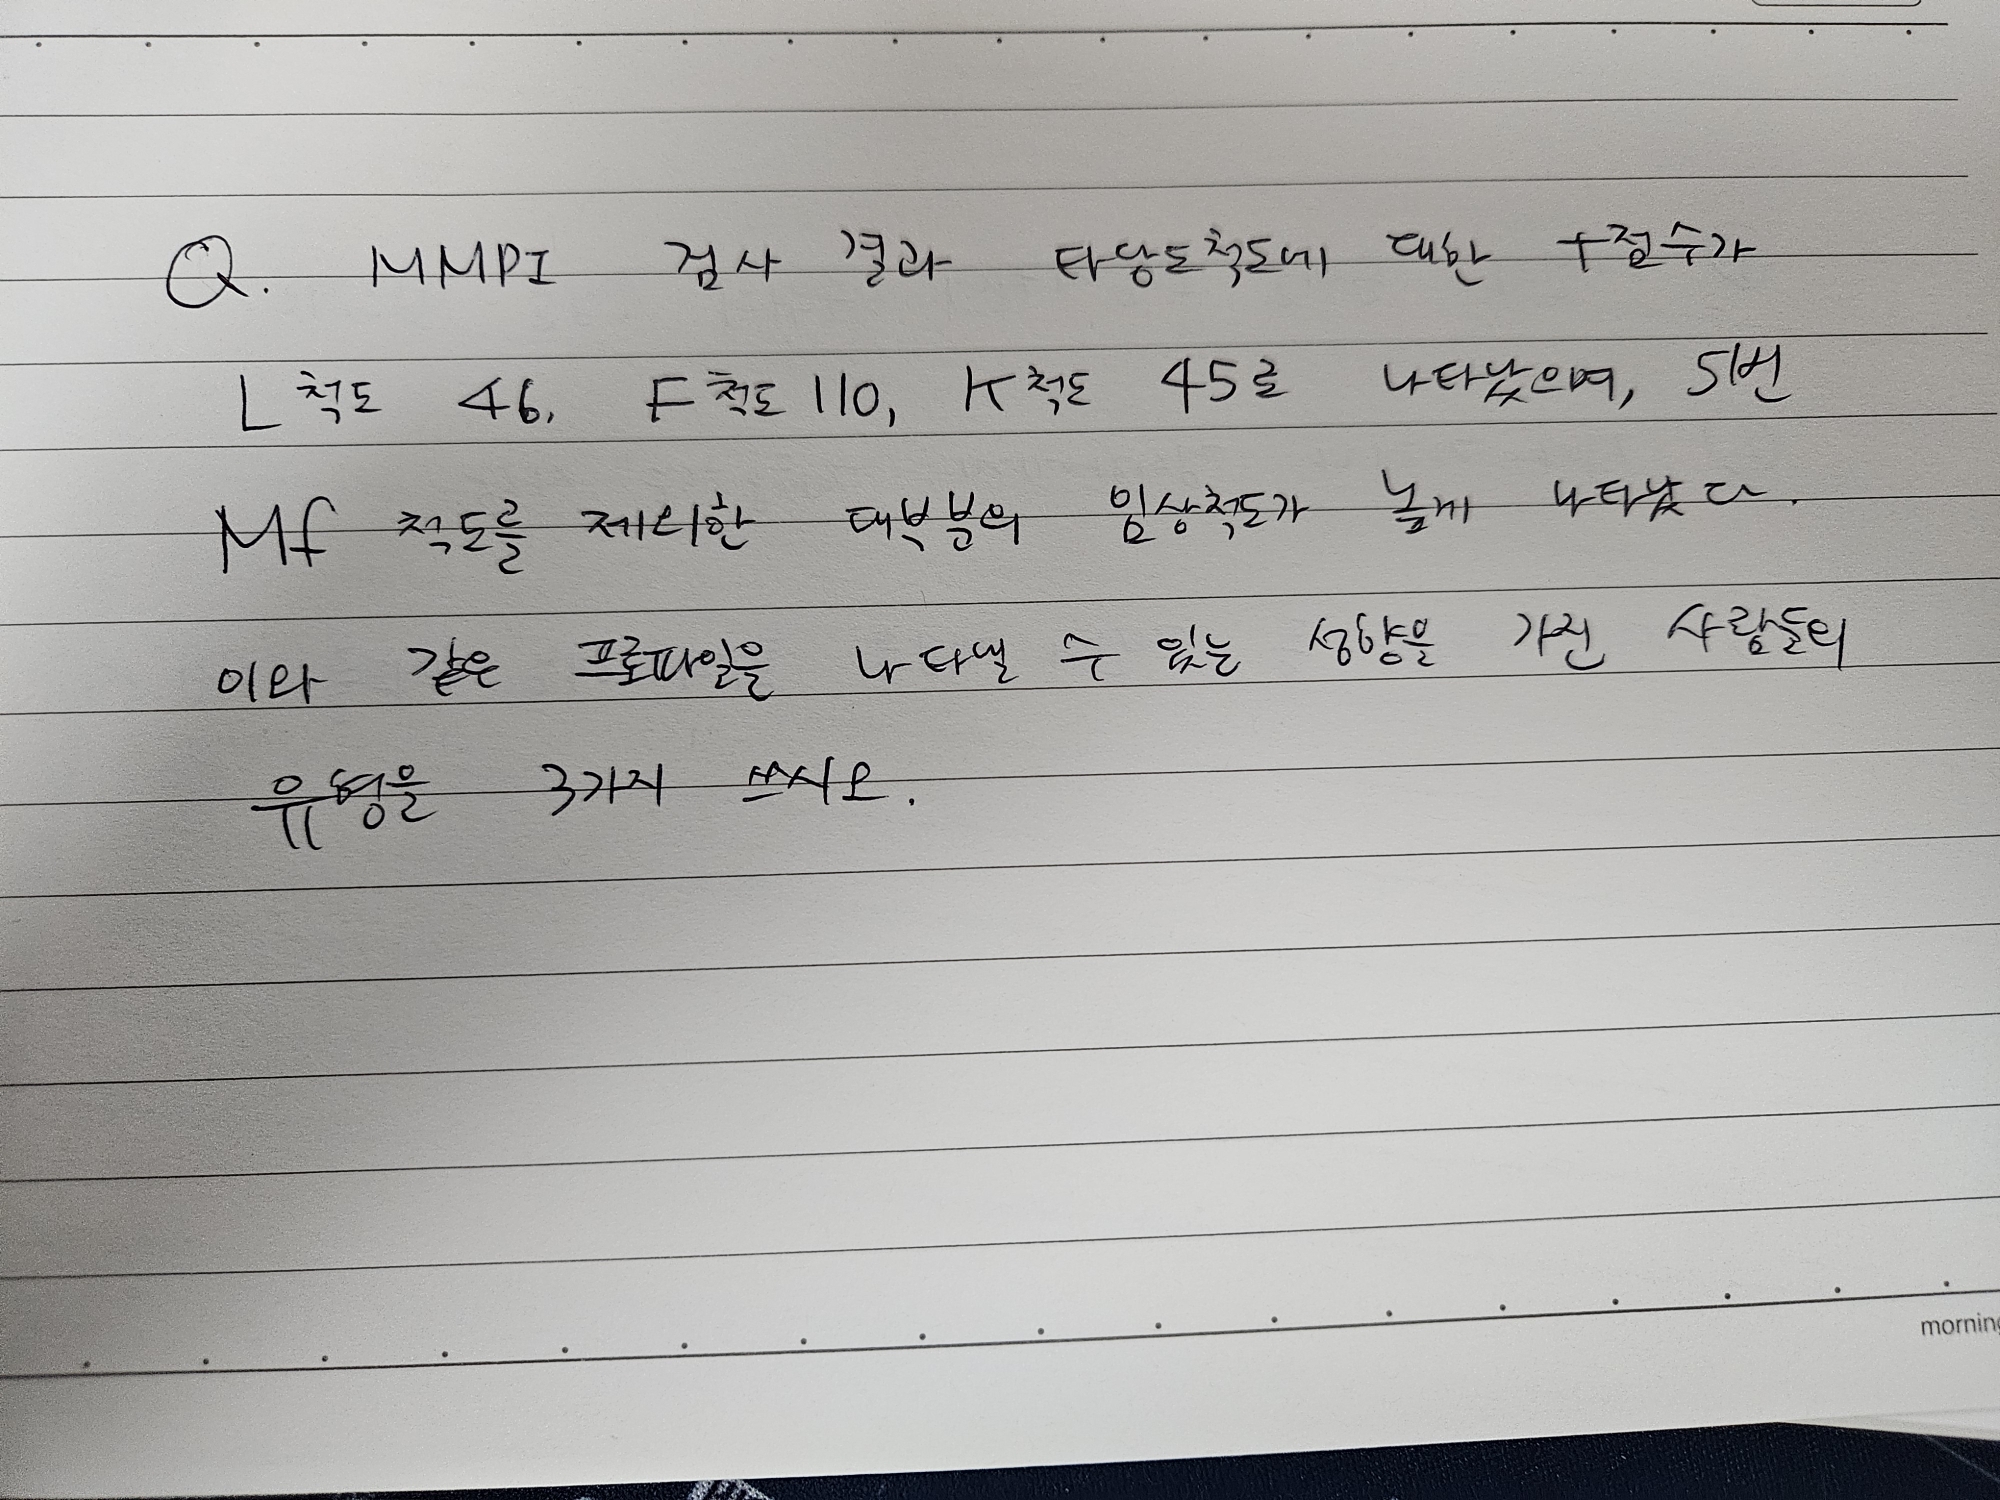 Q. MMPI 검사 결과 타당도척도에 대한 T점수가
L척도 46, F척도 110, K척도 45로 나타났으며, 5번
Mf 척도를 제외한 대부분의 임상척도가 높게 나타났다.
이와 같은 프로파일을 나타낼 수 있는 성향을 가진 사람들의
유형을 3가지 쓰시오.
morning